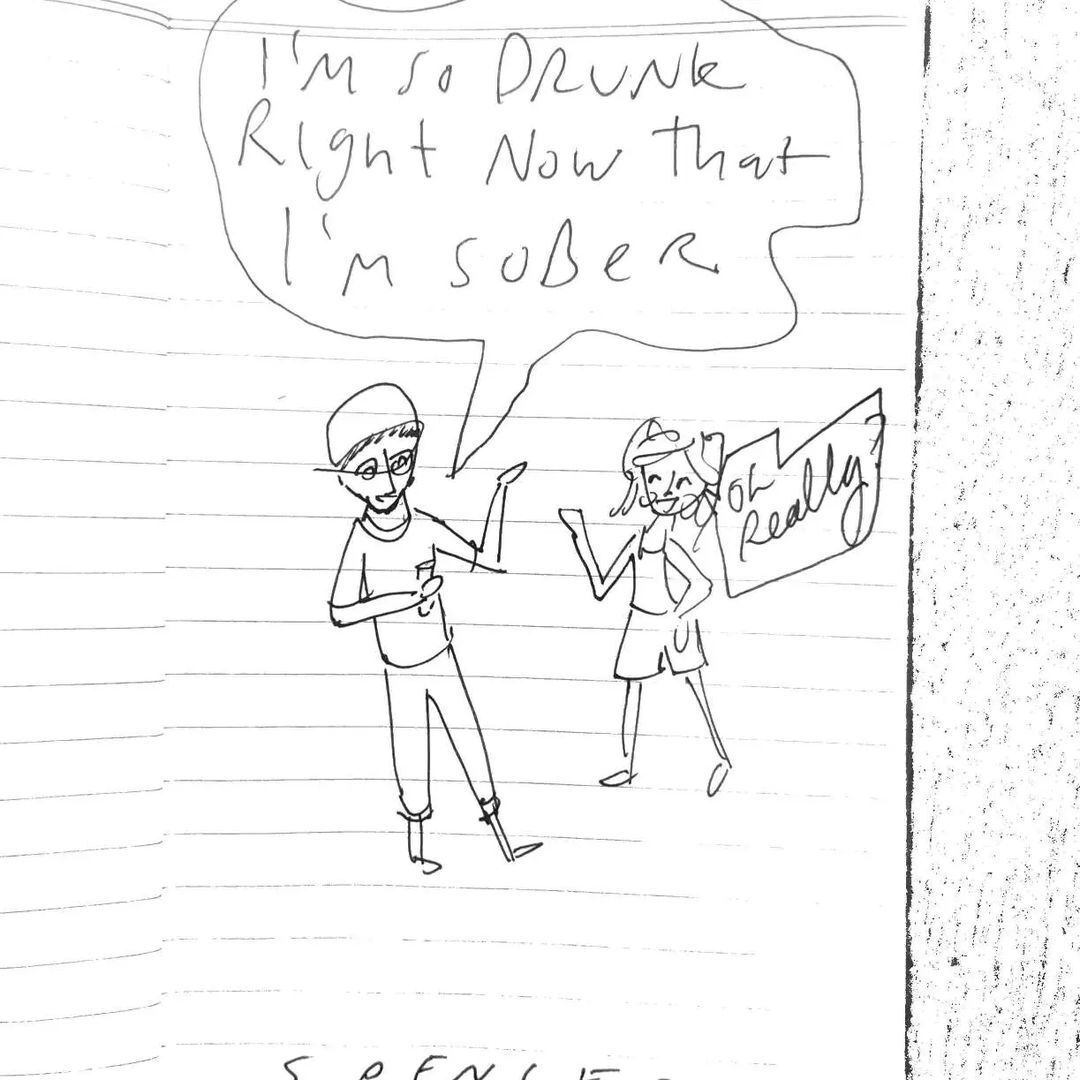 I'm so DRUNk
Right Now that
I'm SoBeR
oh
Really?